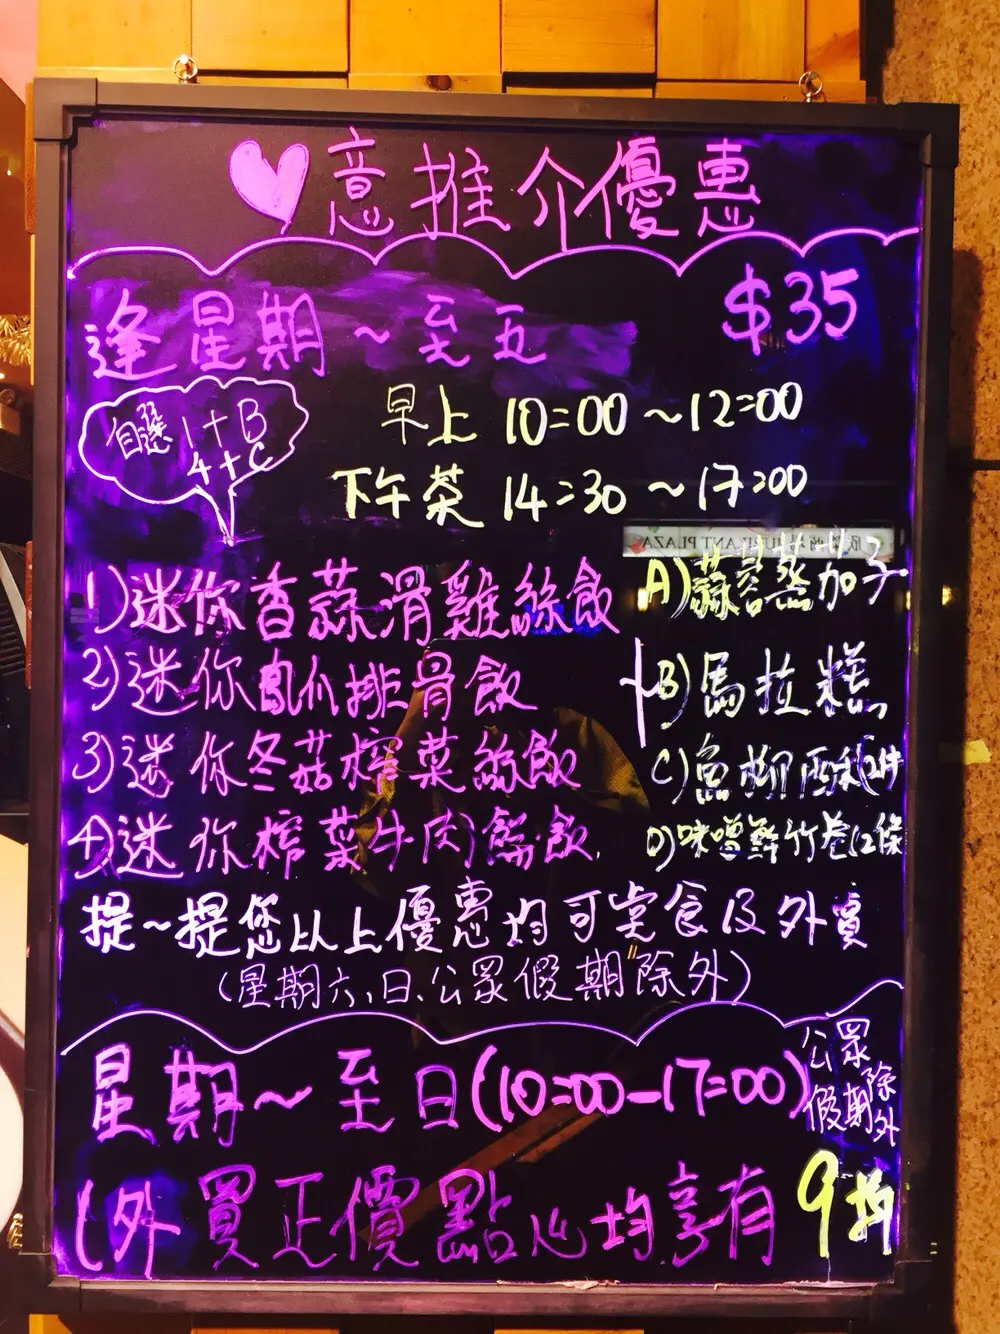 意推介優惠
逢星期一至五 $35
自選 1+B
4+C
早上 10:00~12:00
下午茶 14:30~17:00
1)迷你香蒜滑雞絲飯
2)迷你鳳爪排骨飯
3)迷你冬菇榨菜絲飯
4)迷你榨菜牛肉飯
A)蒜蓉蒸茄子
B)馬拉糕
C)魚柳酥(2件
D)味噌鮮竹卷(2條
提~提您以上優惠均可堂食及外賣
(星期六、日、公眾假期"除外)
星期一至日(10:00-17:00)公眾假期除外
(外買正價點心均享有9折
PLAZA